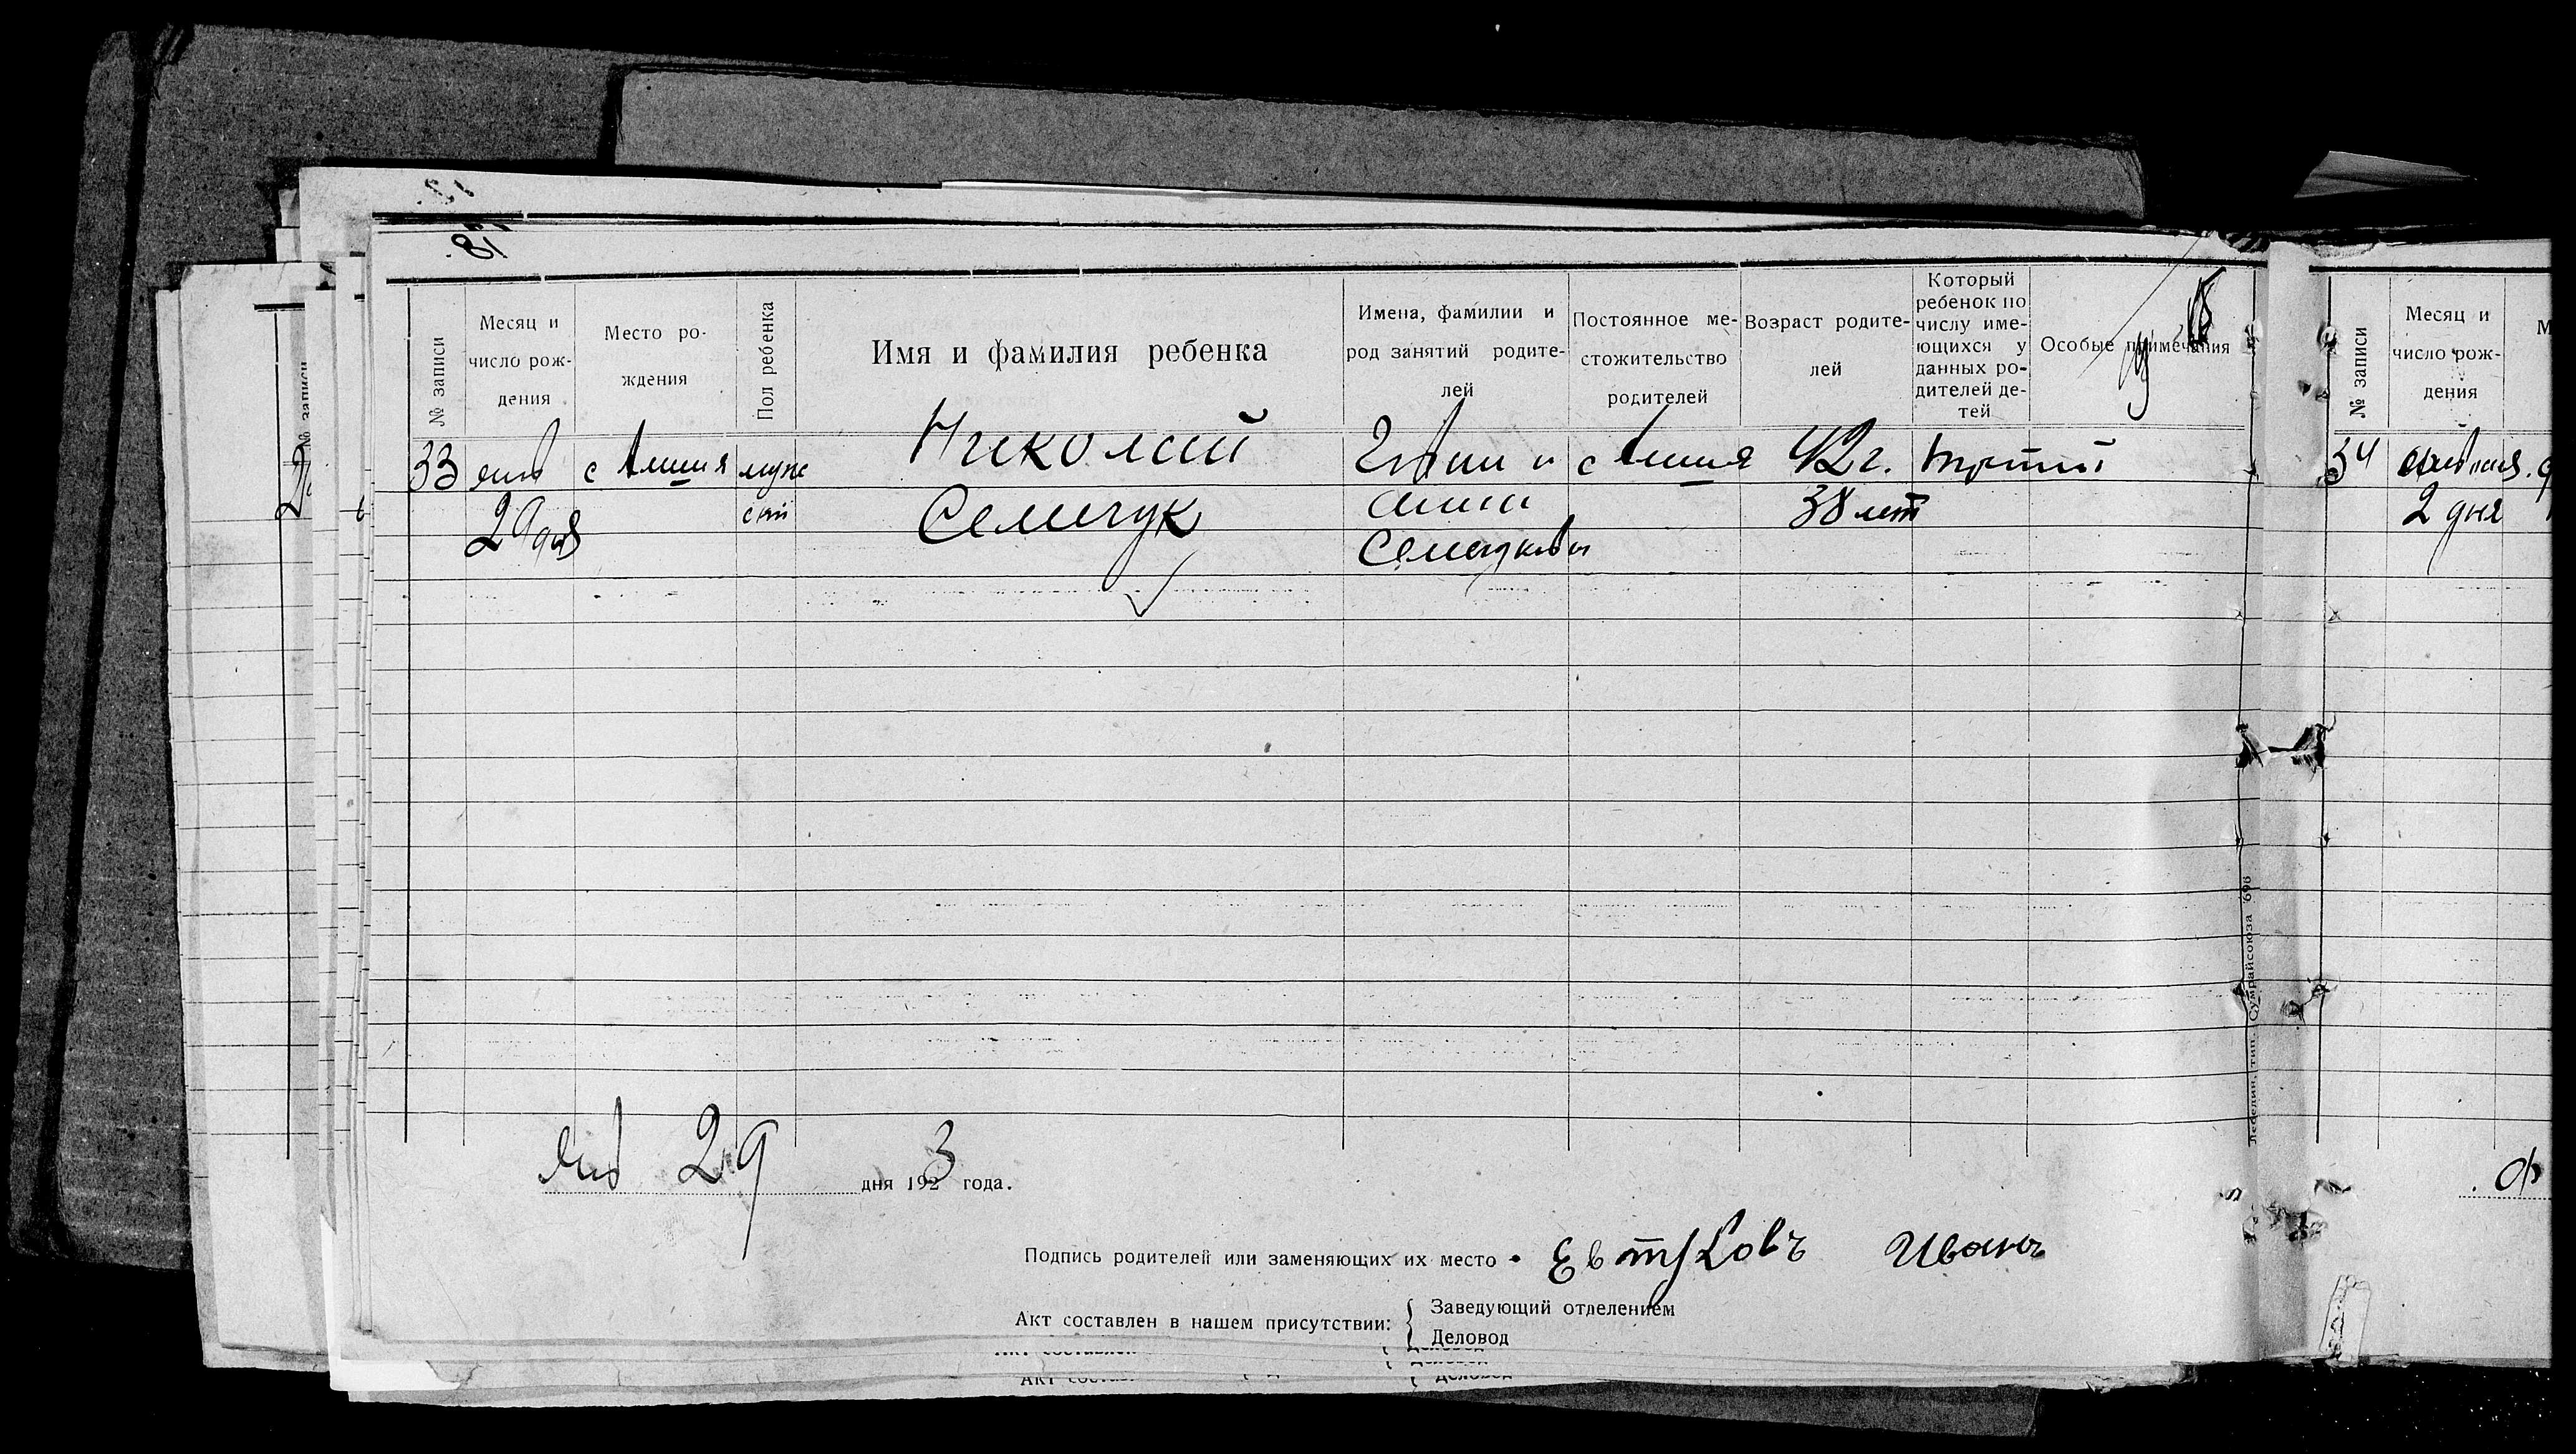 18.
№ записи
Месяц и
число рож-
дения
Место ро-
ждения
Пол ребенка
Имя и фамилия ребенка
Имена, фамилии и
род занятий родите-
лей
Постоянное ме-
стожительство
родителей
Возраст родите-
лей
Который
ребенок по
числу име-
ющихся у
данных ро-
дителей де-
тей
Особые примечания
33 янв с муж Николай и с 42 г. третий
29 дня ский Семичук Анна 38 лет
Семичуковы
янв 29 дня 1923 года.
Подпись родителей или заменяющих их место Евтуховъ Иванъ
Акт составлен в нашем присутствии:
Заведующий отделением
Деловод
Лебедин. тип. Сумрайсоюза 696
№ записи
Месяц и
число рож-
дения
34
2 дня
№ записи